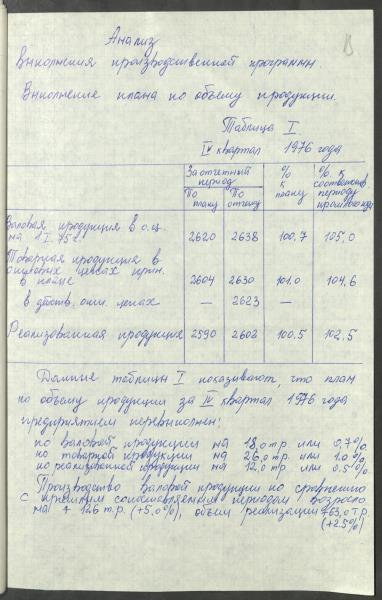 Анализ
выполнения производственной программы
Выполнение плана по объему продукции.
Таблица I.
IV квартал 1976 года
За отчетный период
% к плану
% к соответств. периоду прошлого года
По плану
По отчету
Валовая продукция в о.ц. на 1.I.75 г.
2620 2638 100,7 105,0
Товарная продукция в оптовых ценах прин. в плане
2604 2630 101,0 104,6
в действ. опт. ценах
— 2623 —
Реализованная продукция 2590 2602 100,5 102,5
Данные таблицы I показывают, что план
по объему продукции за IV квартал 1976 года
предприятием перевыполнен:
по валовой продукции на 18,0 т.р. или 0,7%
по товарной продукции на 26,0 т.р. или 1.0%
по реализованной продукции на 12,0 т.р. или 0.5%
Производство валовой продукции по сравнению
с прошлым сопоставляемым периодом возросло
на + 126 т.р. (+5,0%), объем реализации +63,0 т.р.
(+2.5%)